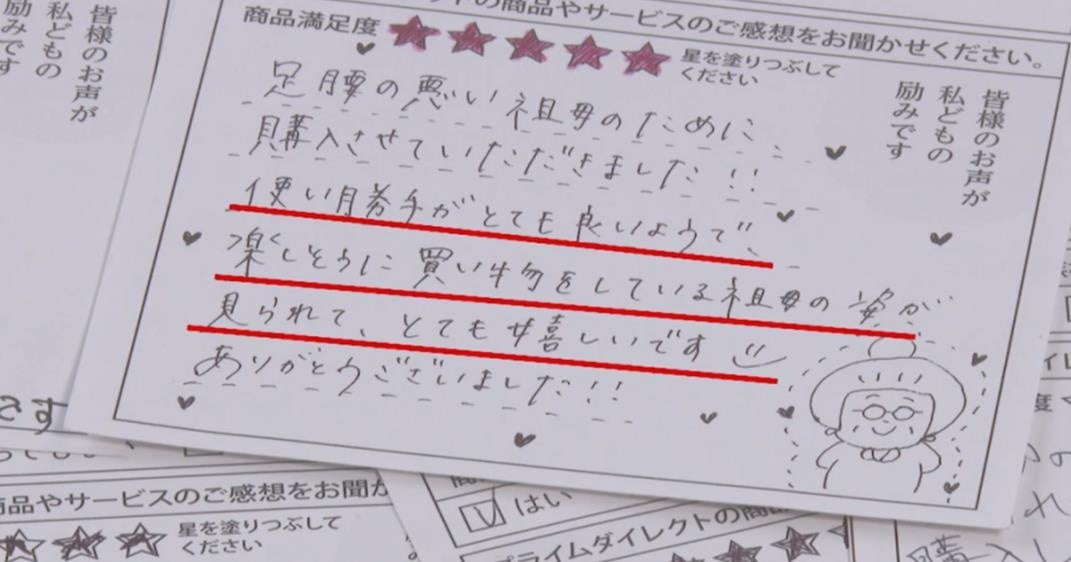 クトの商品やサービスのご感想をお聞かせください。
商品満足度
星を塗りつぶして
ください
足腰の悪い祖母のために
購入させていただきました!!
使い勝手がとても良いようで、
楽しそうに買い物をしている祖母の姿が
見られて、とても嬉しいです
ありがとうございました!!
皆様のお声が
私どもの
励みです
皆様のお声が
私どもの
励みです
商品やサービスのご感想をお聞か
星を塗りつぶして
ください
はい
プライムダイレクトの商品